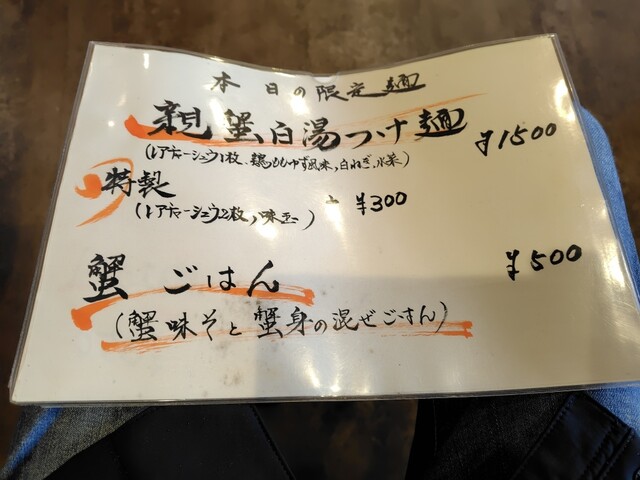 本日の限定麺
親蟹白湯つけ麺 ¥1500
(レアチャーシュウ1枚、鶏ももゆず風味、白ねぎ、水菜)
特製 + ¥300
(レアチャーシュウ2枚、味玉)
蟹ごはん ¥500
(蟹味そと蟹身の混ぜごはん)